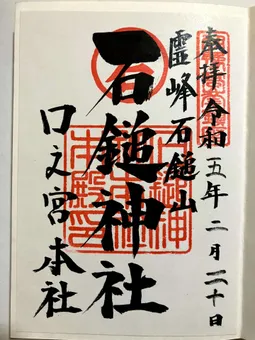 奉拝 令和五年二月二十日
霊峰石鎚山
石鎚神社
口之宮本社